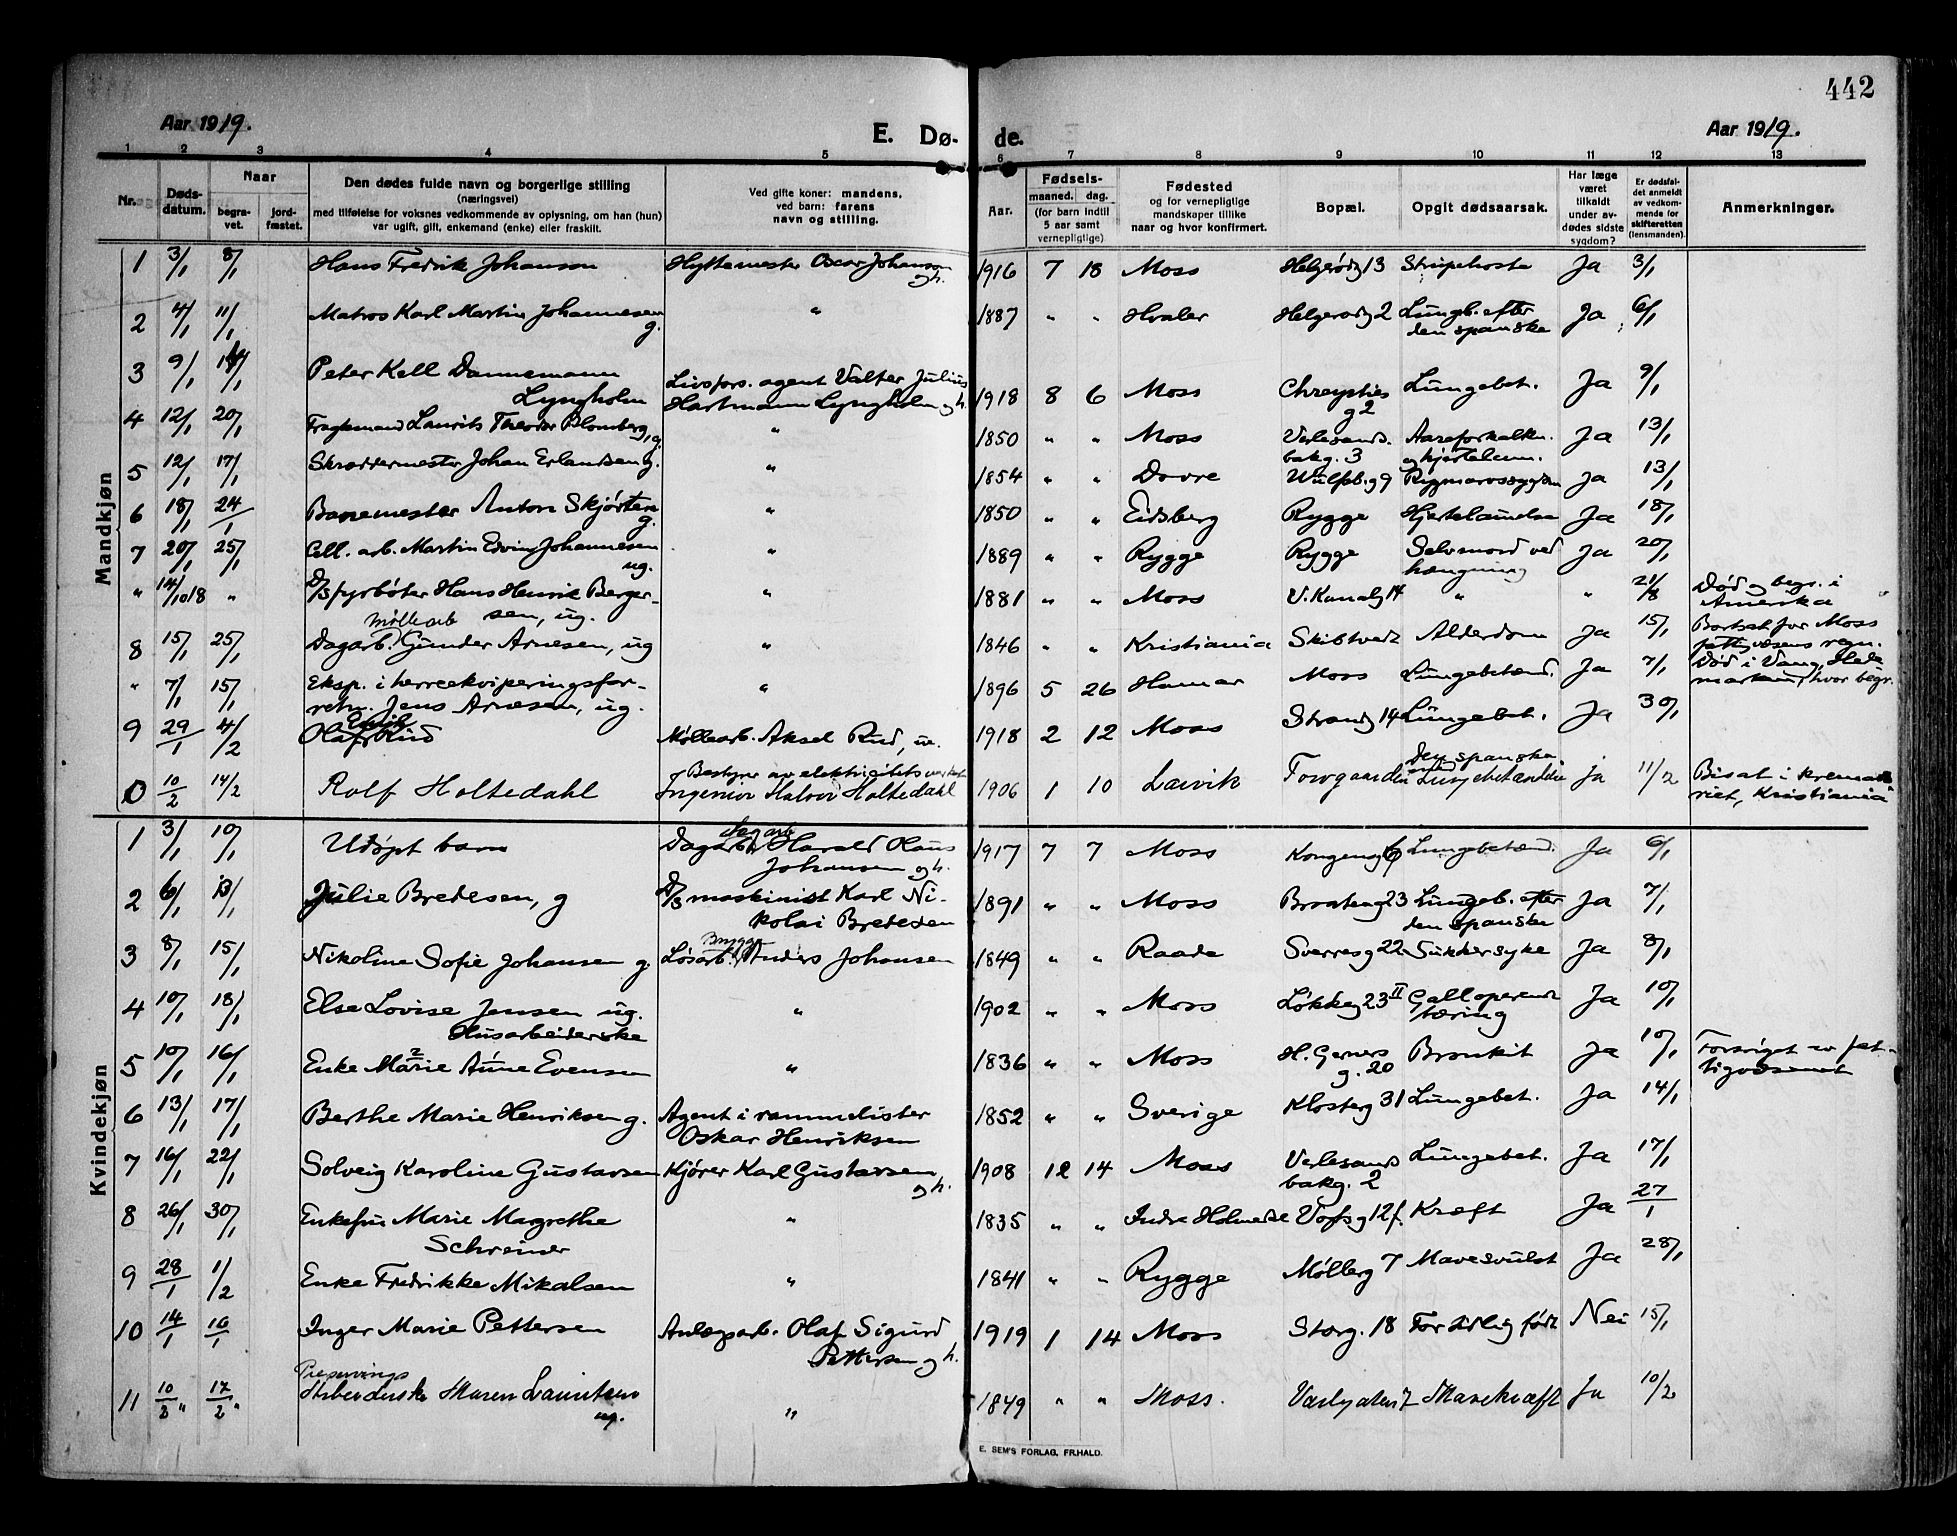 442
Aar 1919.
E. Dø- de.
Aar 1919.
1 2 3 4 5 6 7 8 9 10 11 12 13
Nr.
Døds-
datum.
Naar
begra-
vet.
jord-
fæstet.
Den dødes fulde navn og borgerlige stilling
(næringsvei)
med tilføielse for voksnes vedkommende av oplysning, om han (hun)
var ugift, gift, enkemand (enke) eller fraskilt.
Ved gifte koner: mandens,
ved barn: farens
navn og stilling.
Aar.
Fødsels-
maaned. dag.
(for barn indtil
5 aar samt
vernepligtige)
Fødested
og for vernepligtige
mandskaper tillike
naar og hvor konfirmert.
Bopæl.
Opgit dødsaarsak.
Har læge
været
tilkaldt
under av-
dødes sidste
sygdom?
Er dødsfal-
det anmeldt
av vedkom-
mende for
skifteretten
(lensmanden).
Anmerkninger.
Mandkjøn
1 3/1 8/1 Hans Fredrik Johanson Hyttemester Oscar Johanson gh. 1916 7 18 Moss Helgerødg 13 Strupehoste Ja 3/1
2 4/1 11/1 Matros Karl Martin Johannesen g. " 1887 " " Hvaler Helgerødg 2 Lungb. efter den spanske Ja 6/1
3 9/1 14/1 Peter Kell Dannemann Lyngholm Livsfors. agent Valter Julius Hartmann Lyngholm gh. 1918 8 6 Moss g 2 Lungebet. Ja 9/1
4 12/1 20/1 Fragtemand Laurits Theodor Blomberg, g. " 1850 " " Moss Verlesands. bakg. 3 Aareforkalkn. og hjertelam. Ja 13/1
5 12/1 17/1 Skræddermester Johan Erlandsen g. " 1854 " " Dovre Wulfsb. g 9 Rygmarvssygdom Ja 13/1
6 18/1 24/1 Banemester Anton Skjørten g. " 1850 " " Eidsberg Rygge Hjertelammelse Ja 18/1
7 20/1 25/1 Cell. arb. Martin Edvin Johannesen ug. " 1889 " " Rygge Rygge Selvmord ved hængning Ja 20/1
" 14/10 18 " D/S fyrbøter Hans Henrik Berger-
sen, ug. " 1881 " " Moss V. Kanalg 14 " " 21/8 Død og begr. i Amerika
8 15/1 25/1 Møllearb Dagarb. Gunder Arnesen, ug " 1846 " " Kristiania Skibtvedt Alderdom Ja 15/1 Bortsat for Moss fattigvæsens regn.
" 7/1 15/1 Eksp. i herreekviperingsfor-
retn. Jens Arnesen, ug. " 1896 5 26 Hamar Moss Lungebetænd. Ja 7/1 Død i Vang, Hede
marken, hvor begr.
9 29/1 4/2 Olaf Rud Møllearb. Aksel Rud, u. 1918 2 12 Moss Strandg 14 Lungebet. Ja 30/1
0 10/2 14/2 Rolf Holtedahl Bestyrer av elektricitetsverket
Ingeniør Halvor Holtedahl 1906 1 10 Larvik Torvgaarden Den spanske med Lungebetændelse Ja 11/2 Bisat i krema-
riet, Kristiania
Kvindekjøn
1 3/1 10/1 Udøpt barn Dagarb. Harald Olaus
Johansen gh. 1917 7 7 Moss Kongensg 6 Lungebetænd. Ja 6/1
2 6/1 13/1 Julie Bredesen, g D/S maskinist Karl Ni-
kolai Bredesen 1891 " " Moss Braateng 23 Lungeb. efter den spanske Ja 7/1
3 8/1 15/1 Nikoline Sofie Johansen g. Brygge Løsarb. Anders Johansen 1849 " " Raade Sverresg 22 Sukkersyke Ja 8/1
4 10/1 18/1 Else Lovise Jensen ug.
Husarbeiderske " 1902 " " Moss Løkkeg 23 II Galloperende tæring Ja 10/1
5 10/1 16/1 Enke Marie Anne Evensen " 1836 " " Moss H. Gerners g. 20 Bronkit Ja 10/1 Forsørget av fat-
tigvæsenet
6 13/1 17/1 Berthe Marie Henriksen g. Agent i rammelister
Oskar Henriksen 1852 " " Sverige Klosterg 31 Lungebet. Ja 14/1
7 16/1 22/1 Solveig Karoline Gustavsen Kjører Karl Gustavsen,
gh. 1908 12 14 Moss Verlesands bakg. 2 Lungebet. Ja 17/1
8 26/1 30/1 Enkefru Marie Magrethe
Schreiner " 1835 " " Indre Holmedal Vossg 12 f. Kræft Ja 27/1
9 28/1 1/2 Enke Fredrikke Mikalsen " 1841 " " Rygge Mølleg 7 Mavesvulst Ja 28/1
10 14/1 16/1 Inger Marie Pettersen Anlægsarb. Olaf Sigurd
Pettersen gh. 1919 1 14 Moss Storg. 18 For tidlig født Nei 15/1
11 10/2 " 17/2 " Preservings
Arbeiderske Maren Lauritsen
ug. " 1849 " " Moss. Mavekræft Ja 10/2
E. SEM'S FORLAG, FR.HALD.